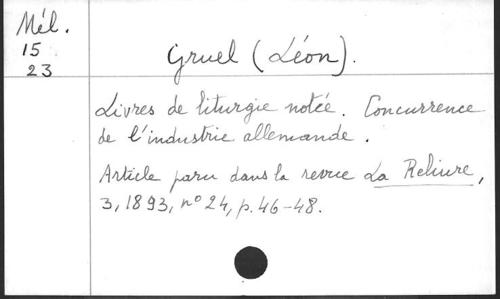 Mél.
15
23
Gruel (Léon).
Livres de liturgie notée. Concurrence
de l'industrie allemande.
Article paru dans la revue La Reliure,
3, 1893, nº 24, p. 46-48.